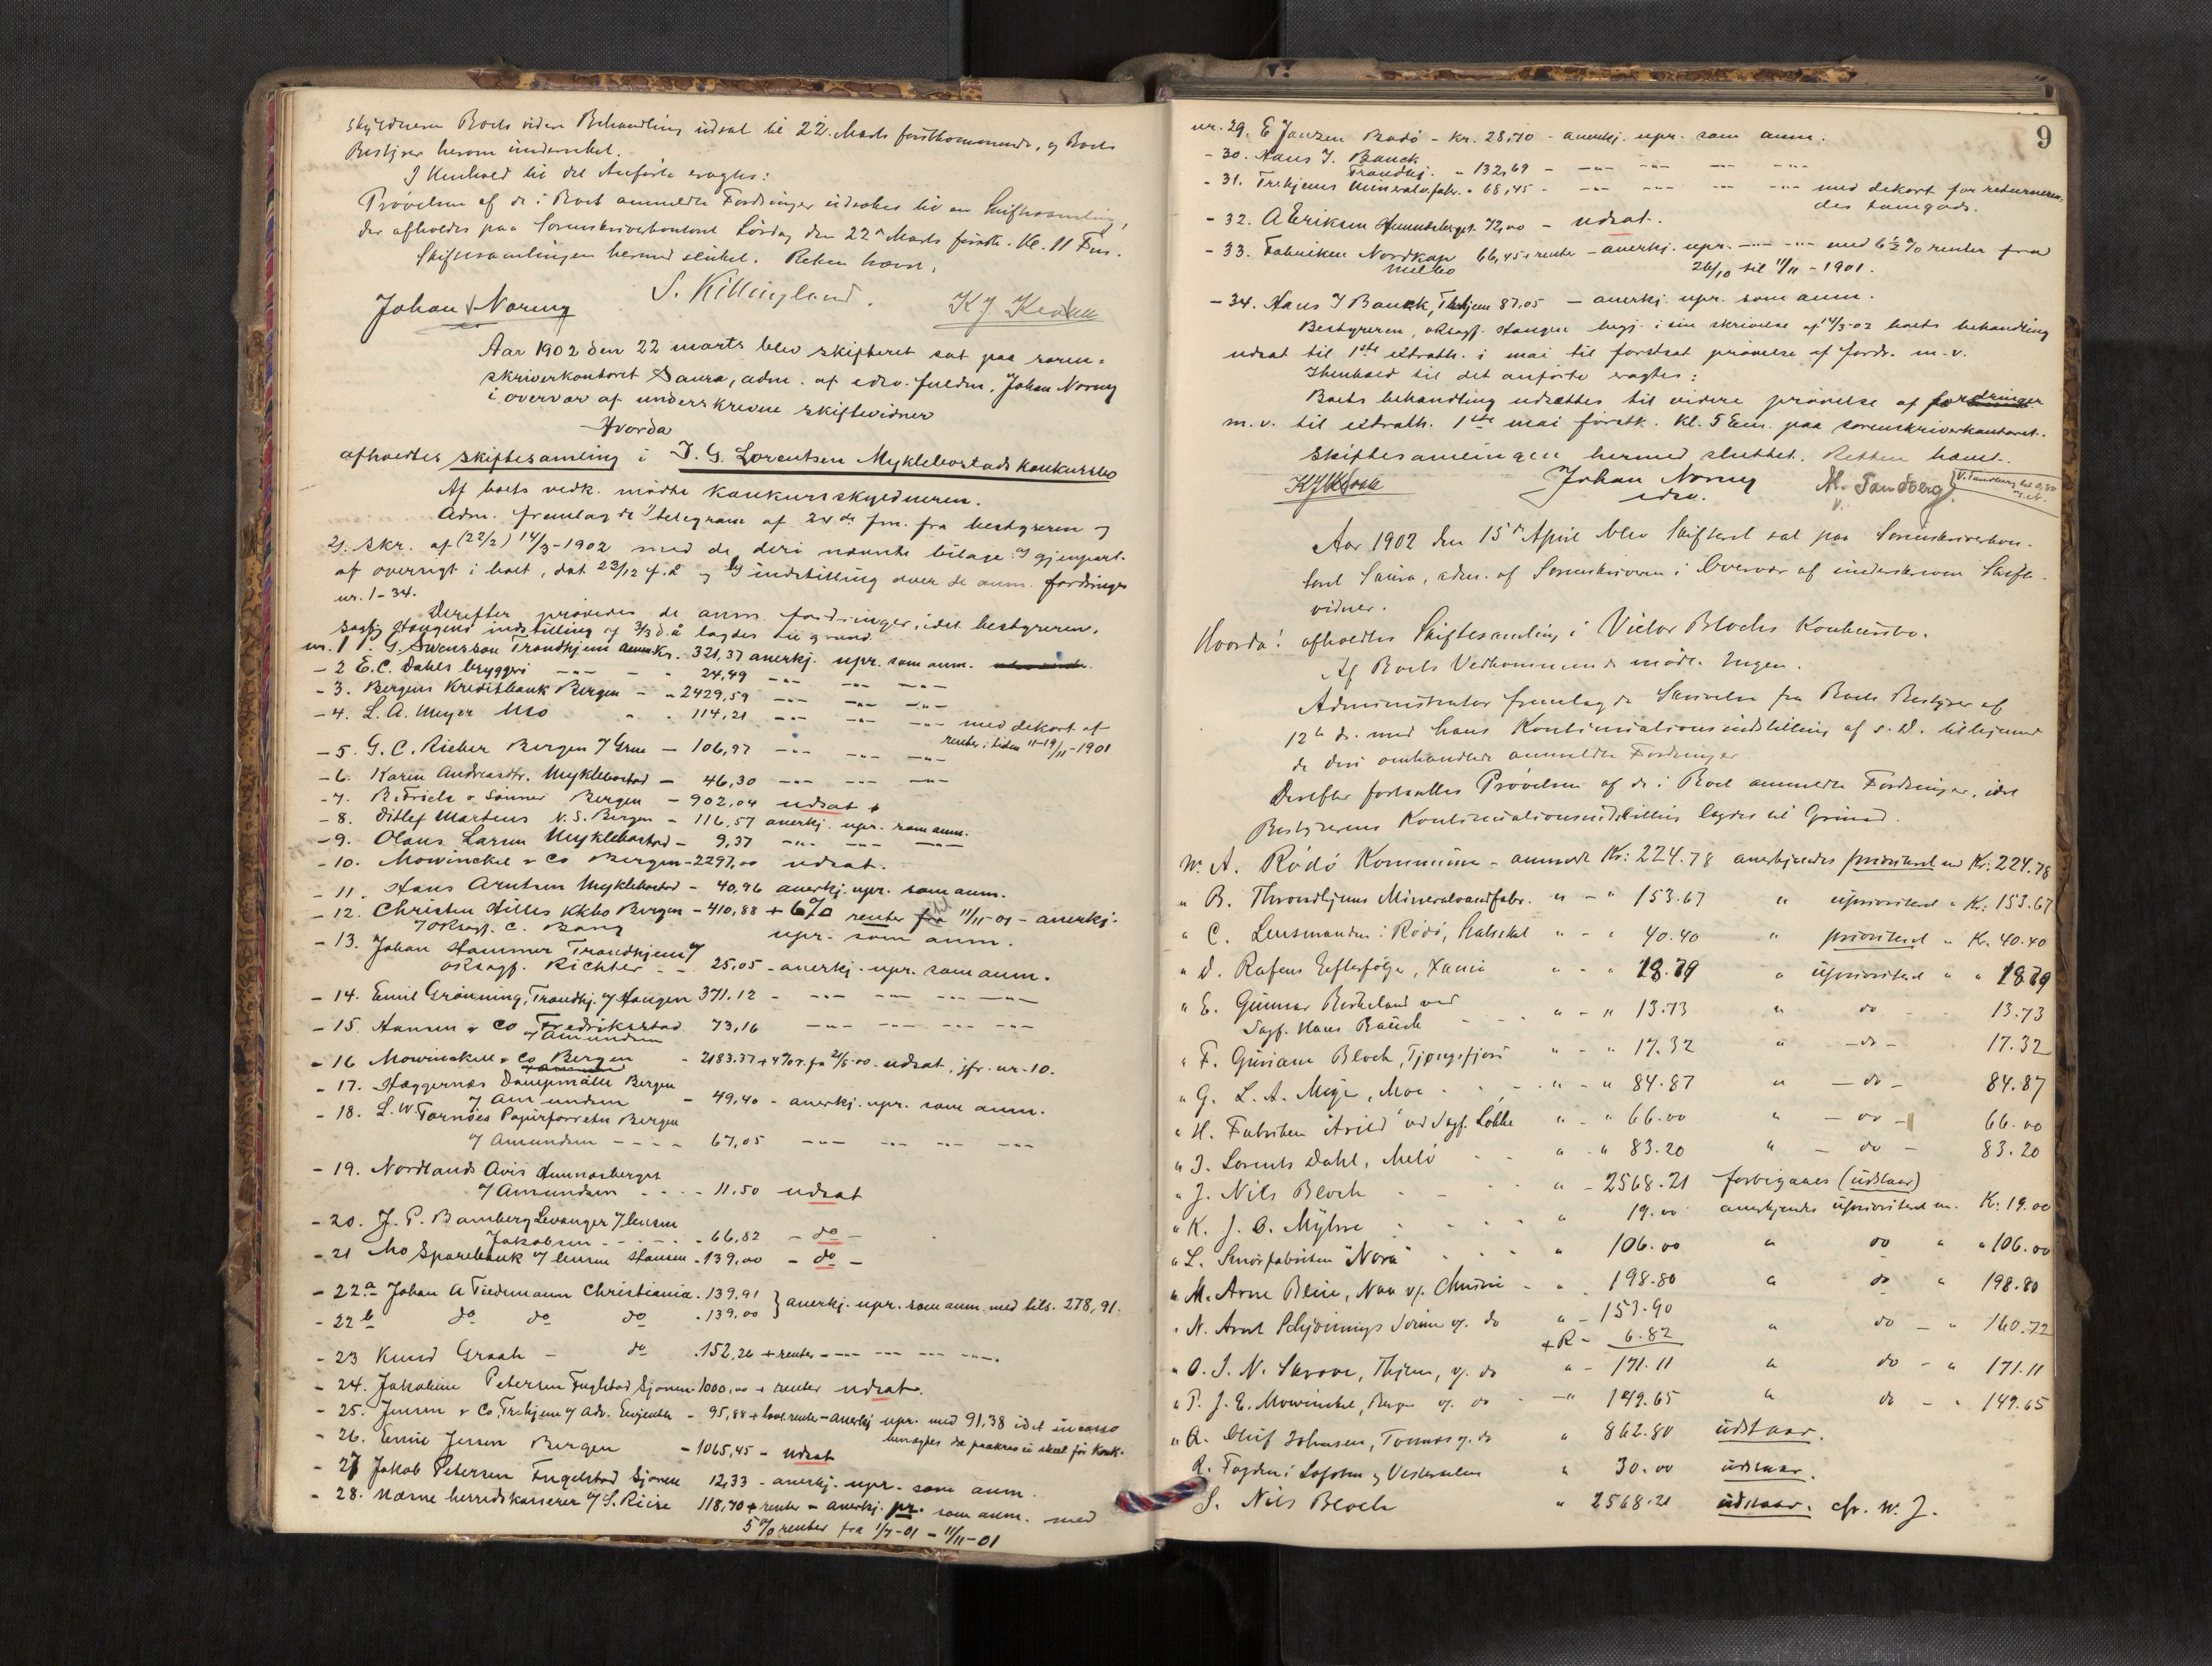 skyldneren Boets videre Behandling udsat til 22. Marts førstkommende, og Boets
Bestyrer herom underrettet.
I Henhold til det Anførte eragtes:
Prøvelsen af de i Boet anmeldte Fordringer udsættes til en Skiftesamling,
der afholdes paa Sorenskriverkontoret Lørdag den 22de Marts førstk. Kl. 11 Fm.
Skiftesamlingen hermed sluttet. Retten hævet.
Johan Normy S. Killingland. K J Kroken
Aar 1902 den 22 marts blev skifteret sat paa soren=
skriverkontoret Saura, adm. af edsv. fuldm. Johan Normy
i overvær af underskrevne skiftevidner
Hvorda
afholdtes skiftesamling i J. G. Lorentsen Myklebostads konkursbo
Af boets vedk. mødte konkursskyldneren.
Adm. fremlagde 1) telegram af 24de fm. fra bestyreren og
2). skr. af (22/2) 14/3-1902 med de deri nævnte bilage: a) gjenpart.
af oversigt i boet, dat 23/12 f.å og b) indstilling over de anm. fordringer
nr. 1-34.
Derefter prøvedes de anm. fordringer, idet bestyreren,
sagfg Stangens indstilling af 3/3 d.å lagdes til grund
nr. 1. G. Swensson Trondhjem anm Kr. 321,37 anerkj. upr. som anm.
- 2 E.C. Dahls bryggeri -"- - " 24,49 -"- -"- -"-
- 3. Bergens Kreditbank Bergen - " 2429,59 -"- -"- -"-
- 4. L. A. Meyer Mo " " 114,21 -"- -"- -"- med dekort af
renter i tiden 11-19/11-1901
- 5. G. C. Rieber Bergen - 106,97 -"- -"- -"-
- 6. Karen Andreasdtr. Myklebostad - 46,30 -"- -"- -"-
- 7. B. Friele & Sønner Bergen - 902,04 udsat
- 8. Ditlef Martens N.S. Bergen - 116,57 anerkj. upr. som anm.
- 9. Olaus Larsen Myklebostad - 9,37 -"- -"- -"-
- 10. Mowinckel & Co Bergen - 2297,00 udsat.
- 11. Hans Arntsen Myklebostad - 40,96 anerkj. upr. som anm.
- 12. Christen Hilles Kkbo Bergen - 410,88 + 6% renter til 11/11-01 - anerkj.
v/ Oksagf. C. Bang upr. som anm.
- 13. Johan Hammer Trondhjem v/
oksagf. Richter - - 25,05 - anerkj. upr. som anm.
- 14. Emil Grønning, Trondhj. v/ Stangen 371.12 - -"- -"- -"-
- 15. Hansen & Co Fredriksstad 73,16 -"- -"- -"- -"-
v/ Amundsen
- 16 Mowinckel & Co Bergen - 2183.37 + 4% r. fra 21/5-00 - udsat, jfr. nr. 10.
- 17. Hæggernæs Dampmølle Bergen
v/ Amundsen - 49,40 - anerkj. upr. som anm.
- 18. L. W. Tornøes Papirforretn Bergen
v/ Amundsen - - - - 67,05 -"- -"- -"- -"-
- 19. Nordlands Avis Hemnæsberget
v/ Amundsen - - - - 11.50 udsat
- 20. J. P. Bamberg Levanger v/ lensm
Jakobsen - - - - - - 66,82 - do -
- 21 Mo Sparebank v/ lensm Hansen - 139,00 - do -
- 22a Johan A Tiedemann Christiania - 139,91 } anerkj. upr. som anm. med tils. 278,91.
- 22b do do do - 139.00
- 23 Knud Graah - do . 152,26 + renter - -"- -"- -"- -"-
- 24. Jakobine Petersen Fuglstad Sjonen - 1000,00 + renter udsat.
- 25. Jensen & Co, Trhjem v/ Adv. - 95,88 + renter - anerkj upr. med 91,38 idet incasso
benægtes
- 26. Emil Jensen Bergen - 1065,45 - udsat
- 27 Jakob Petersen Fuglstad Sjonen 12,33 - anerkj. upr. som anm.
- 28. Næsne herredskasserer v/ S. Riise 118,70 + renter - anerkj. pr. som anm. med
5% renter fra 1/7-01 - 11/11-01
9
nr. 29. E Janzen Bodø - Kr. 28,70 - anerkj. upr. som anm.
- 30. Hans J. Bauck
Trondhj. - 132,69 - -"- -"- -"- -"-
- 31. Trhjems mineralv.fabr. - 68,45 - -"- -"- -"- -"- med dekort for returneren-
des tomgods.
- 32. A Eriksen Hemnæsberget 72,00 - udsat.
- 33. Fabriken Nordkap 66,45 + renter - anerkj. upr. -"- -"- med 6½% renter fra
Melbo 26/10 til 11/11 - 1901.
- 34. Hans J Bauck, Trhjem 87.05 - anerkj. upr. som anm.
Bestyreren, oksagf. Stangen begj. i sin skrivelse af 14/3-02 boets behandling
udsat til 1ste extrath. i mai til fortsat prøvelse af fordr. m.v.
I henhold til det anførte eragtes:
Boets behandling udsættes til videre prøvelse af fordringer
m.v. til extrath. 1ste mai førstk. kl. 5 Em. paa sorenskriverkontoret.
Skiftesamlingen hermed sluttet. Retten hævet.
K J Kroken Johan Normy M. Sandberg
edsv.
Aar 1902 den 15de April blev Skifteret sat paa Sorenskriverkon-
toret Saura, adm. af Sorenskriveren i Overvær af underskrevne Skifte-
vidner.
Hvorda: afholdtes Skiftesamling i Victor Blochs Konkursbo.
Af Boets Vedkommende mødte Ingen.
Administrator fremlagde Skrivelse fra Boets Bestyrer af
12te ds. med hans Kontinuationsindstilling af s. D. tilligemed
de deri omhandlede anmeldte Fordringer
Derefter fortsattes Prøvelsen af de i Boet anmeldte Fordringer, idet
Bestyrerens Kontinuationsindstilling lagdes til Grund.
Nr. A. Rødø Kommune - anmeldt Kr: 224.78 anerkjendes prioriteret med Kr. 224.78
" B. Throndhjems Mineralvandfabr. " - " 153.67 " uprioriteret " Kr: 153.67
" C. Lensmanden i Rødø, " - " 40.40 " prioriteret " K. 40.40
" D. Rafens Efterfølger, Xania " - " 18.79 " uprioriteret " " 18.79
" E. Gunnar Birkeland ved
Sagf. Hans Bauck - - " - " 13.73 " do - - 13.73
" F. Guriane Bloch, Tjongsfjord " - " 17.32 " - do - 17.32
" G. L. A. Meyer, Moe - - " - " 84.87 " - do - 84.87
" H. Fabriken "Arild" ved Sagf. Løkke " - " 66.00 " - do - 66.00
" I. Lorents Dahl, Melø - - " - " 83.20 " - do - 83.20
" J. Nils Bloch - - - " - 2568.21 forbigaaes (udstaar)
" K. J. O. Myhre - - - " 19.00 anerkjendes uprioriteret m. K. 19.00
" L. Smørfabriken "Nora" - - - " 106.00 " do " " 106.00
" M. Arne - " 198.80 " do " 198.80
" N. Arnt Schjønnings Sønner v. do " - 153.90
+ R - 6.82 " do - " 160.72
" O. J. N. Skrove, Thjem, v. do " - 171.11 " do - " 171.11
" P. J. E. Mowinckel, Bergen v. do - " 149.65 " do - " 149.65
" Q. Oluf Johansen, v. do " 862.80 udstaar.
R. Fogden i Lofoten og Vesteraalen " 30.00 udstaar.
S. Nils Bloch " 2568.21 udstaar. cfr. Nr. J.